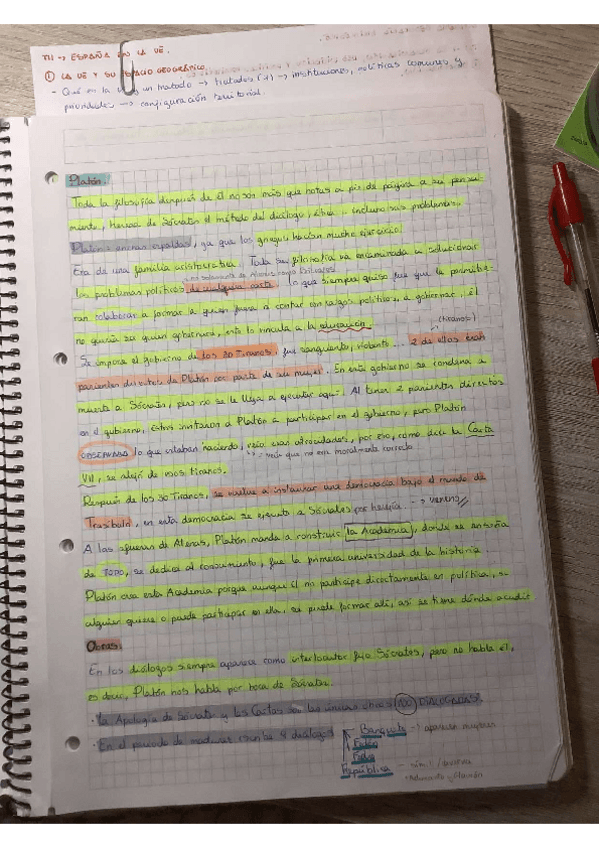 TII → ESPAÑA EN LA UE.
① LA UE Y SU ESPACIO GEOGRÁFICO.
- Qué es la un tratado → tratados (4) → instituciones, políticas comunes y
prioridades → configuración territorial.
Platón.
Toda la filosofía después de él no son más que notas a pie de página a su pensa-
miento, hereda de Sócrates el método del diálogo, ética incluso sus problemas.
Platón = anchas espaldas, ya que los griegos hacían mucho ejercicio.
Era de una familia aristocrática. Toda su filosofía va encaminada a solucionar
los problemas políticos de cualquier costa. Lo que siempre quiso fue que le permitie-
ran colaborar a formar a quien fuera a contar con cargos políticos, a gobernar, él
no quería ser quien gobernara, esto lo vincula a la educación
(tiranos)
Se impone el gobierno de los 30 Tiranos, fue sangriento, violento... 2 de ellos eran
parientes directos de Platón por parte de su mujer. En este gobierno se condena a
muerte a Sócrates, pero no se le llega a ejecutar aquí. Al tener 2 parientes directos
en el gobierno, estos invitaron a Platón a participar en el gobierno, pero Platón
OBSERVABA lo que estaban haciendo, veía esas atrocidades, por eso, como dice la Carta
↳ veía que no era moralmente correcto
VII, se alejó de esos tiranos.
Después de los 30 Tiranos, se vuelve a instaurar una democracia bajo el mando de
Trasíbulo, en esta democracia se ejecuta a Sócrates por herejía → veneno
A las afueras de Atenas, Platón manda a construir la Academia, donde se enseña
de TODO, se dedica al conocimiento, fue la primera universidad de la historia.
Platón crea esta Academia porque aunque él no participe directamente en política, si
alguien quiere o puede participar en ella, se puede formar allí, así se tiene dónde acudir.
Obras.
En los diálogos siempre aparece como interlocutor fijo Sócrates, pero no habla él,
es decir, Platón nos habla por boca de Sócrates.
· La Apología de Sócrates y las Cartas son las únicas obras NO DIALOGADAS.
· En el periodo de madurez escribe 4 diálogos
Banquete → aparecen mujeres
Fedón
Fedro
República →